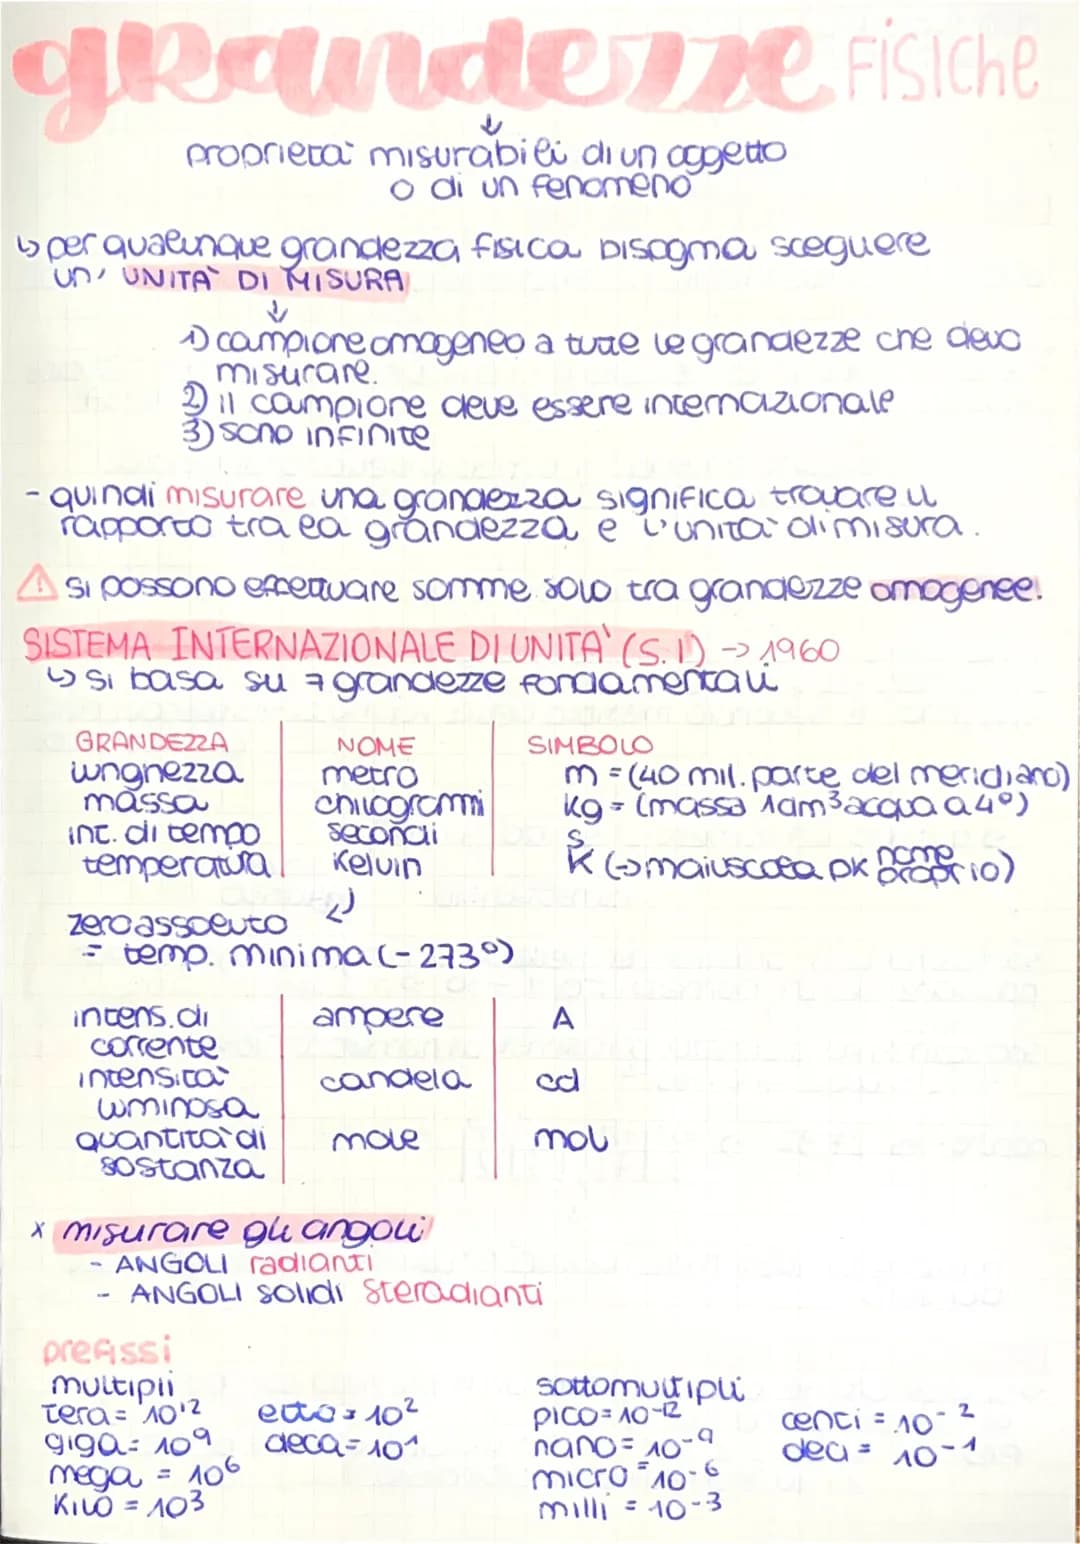 grandezze FisIche
proprieta' misurabili di un oggetto
o di un fenomeno
per qualunque grandezza fisica bisogma sceguere
un' UNITA' DI MISURA
1) campione omogeneo a tutte le grandezze che devo
misurare.
2) il campione deve essere internazionale
3) sono infinite
- quindi misurare una grandezza significa trovare il
rapporto tra la grandezza e l'unita' di misura.
si possono effettuare somme solo tra grandezze omogenee!
SISTEMA INTERNAZIONALE DI UNITA' (S.I) → 1960
↳ si basa su 7 grandezze fondamentali
GRANDEZZA NOME SIMBOLO
lunghezza metro m = (40 mil. parte del meridiano)
massa chilogrammi kg = (massa 1dm³ acqua a 4°)
int. di tempo secondi s
temperatura Kelvin K (→ maiuscola pk nome proprio)
zero assoluto
= temp. minima (-273°)
intens. di ampere A
corrente
intensita' candela cd
luminosa
quantita' di mole mol
sostanza
x misurare gli angoli
- ANGOLI radianti
- ANGOLI solidi steradianti
prefissi
multipli sottomultipli
tera = 10¹² etto = 10² pico = 10⁻¹² centi = 10⁻²
giga = 10⁹ deca = 10¹ nano = 10⁻⁹ deci = 10⁻¹
mega = 10⁶ micro = 10⁻⁶
Kilo = 10³ milli = 10⁻³